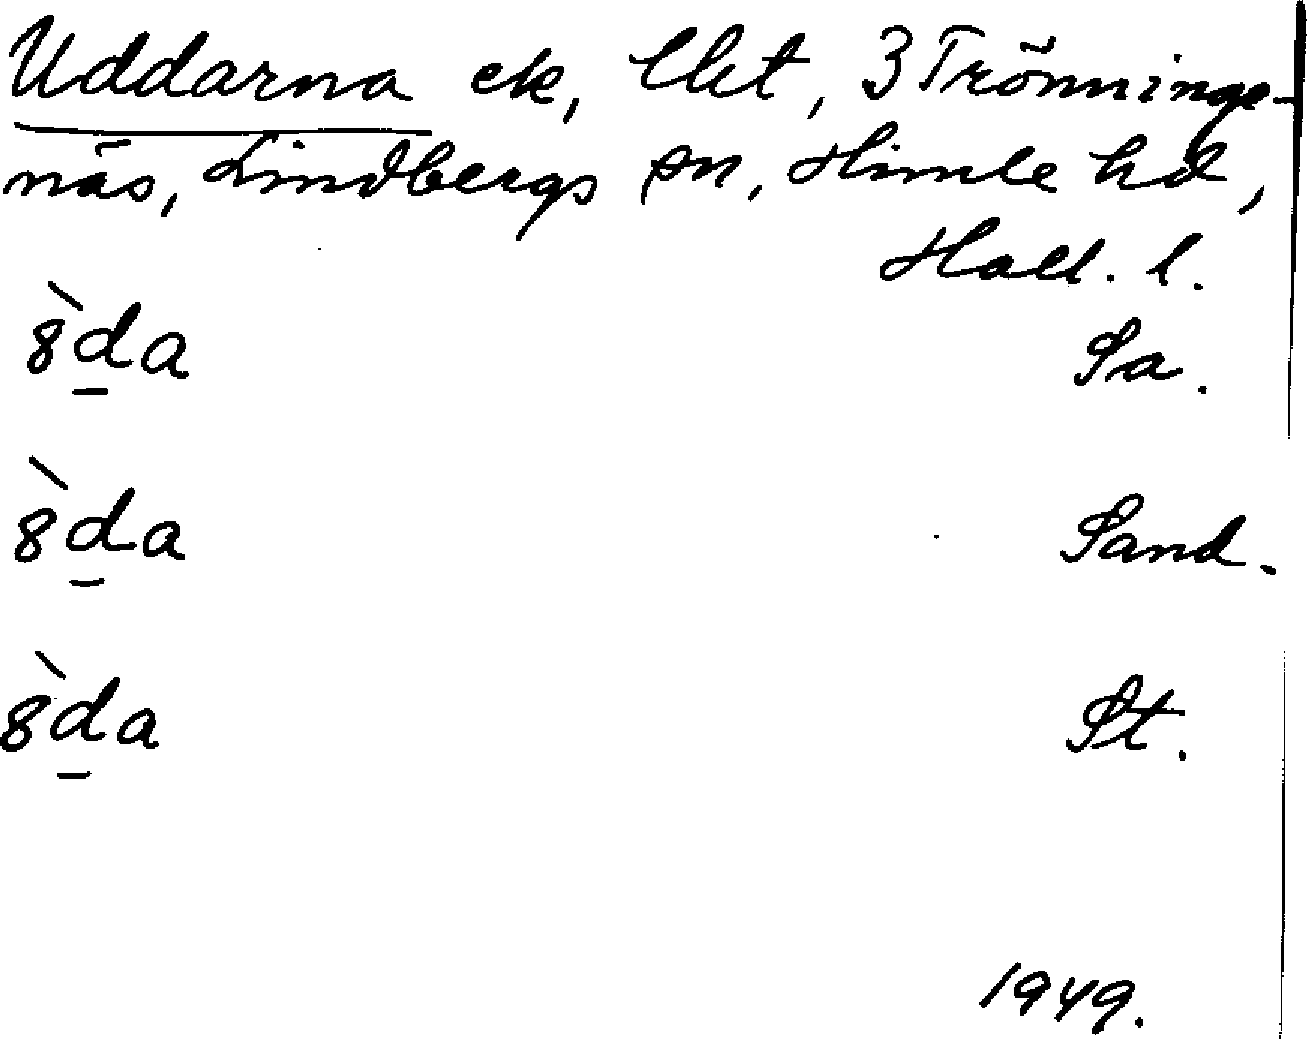 Uddarna ek, lht, 3 Trönninge-
näs, Lindbergs sn, Himle hd,
Hall. l.
8̀d̲a Sa.
8̀d̲a Sand.
8̀d̲a St.
1949.